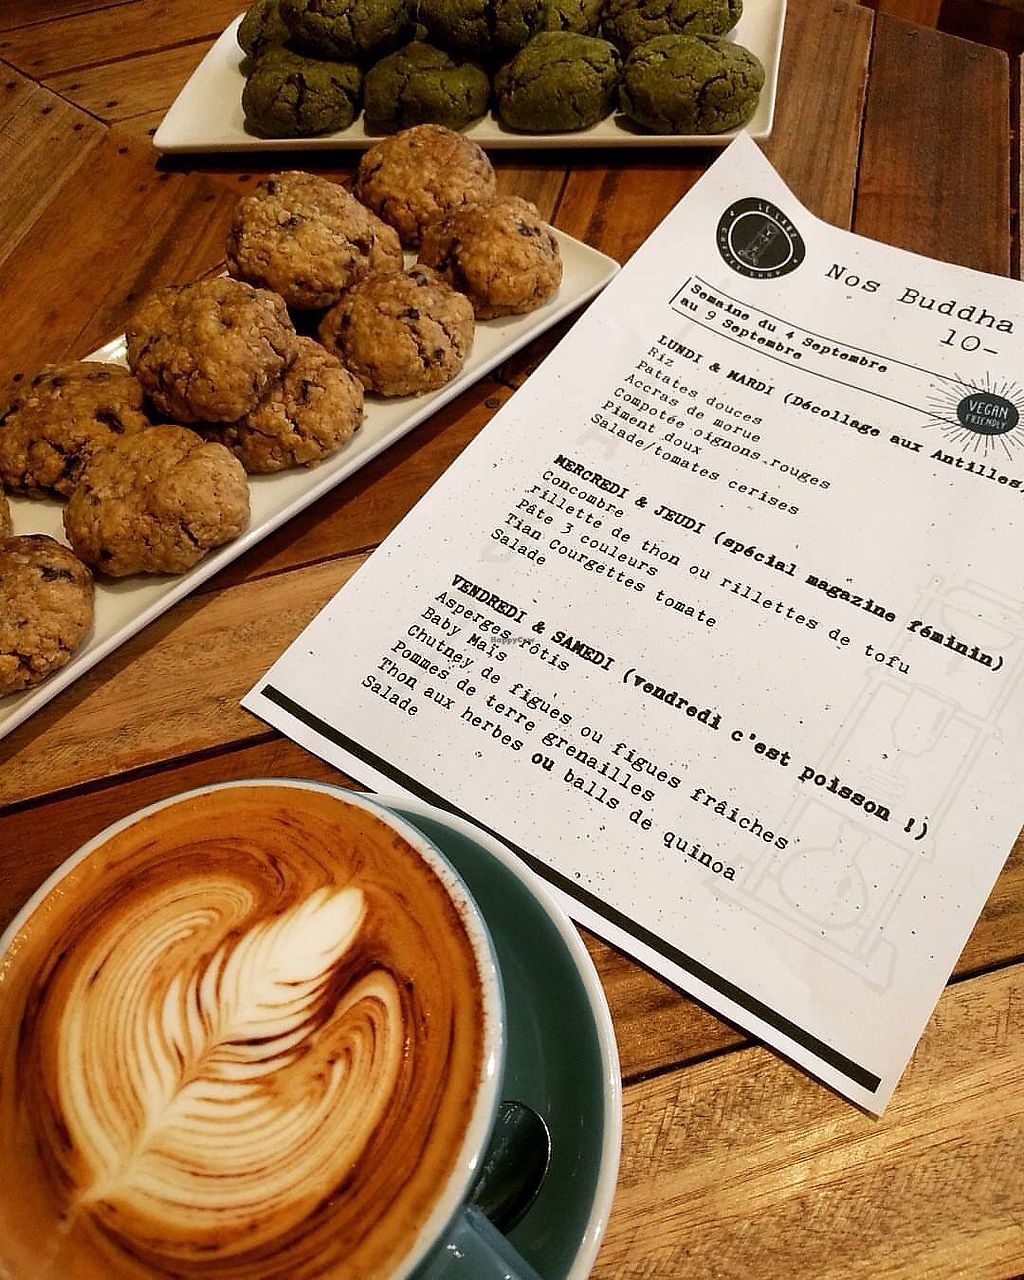 LE LABO
COFFEE SHOP
Nos Buddha
10-
Semaine du 4 Septembre
au 9 Septembre
VEGAN
FRIENDLY
LUNDI & MARDI (Décollage aux Antilles)
Riz
Patates douces
Accras de morue
Compotée oignons rouges
Piment doux
Salade/tomates cerises
MERCREDI & JEUDI (spécial magazine féminin)
Concombre
rillette de thon ou rillettes de tofu
Pâte 3 couleurs
Tian Courgettes tomate
Salade
VENDREDI & SAMEDI (vendredi c'est poisson !)
Asperges rôtis
Baby Maïs
Chutney de figues ou figues fraîches
Pommes de terre grenailles
Thon aux herbes ou balls de quinoa
Salade
HappyCow